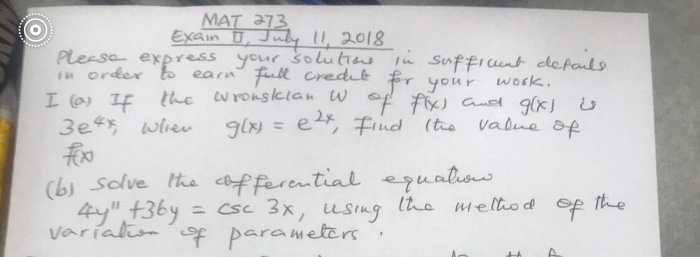 MAT 273
Exam II, July 11, 2018
Please express your solutions in sufficient details
in order to earn full credit for your work.
I (a) If the wronskian W of f(x) and g(x) is
3e^4x, when g(x) = e^2x, find the value of
f(x)
(b) Solve the differential equation
4y" + 36y = csc 3x, using the method of the
variation of parameters.